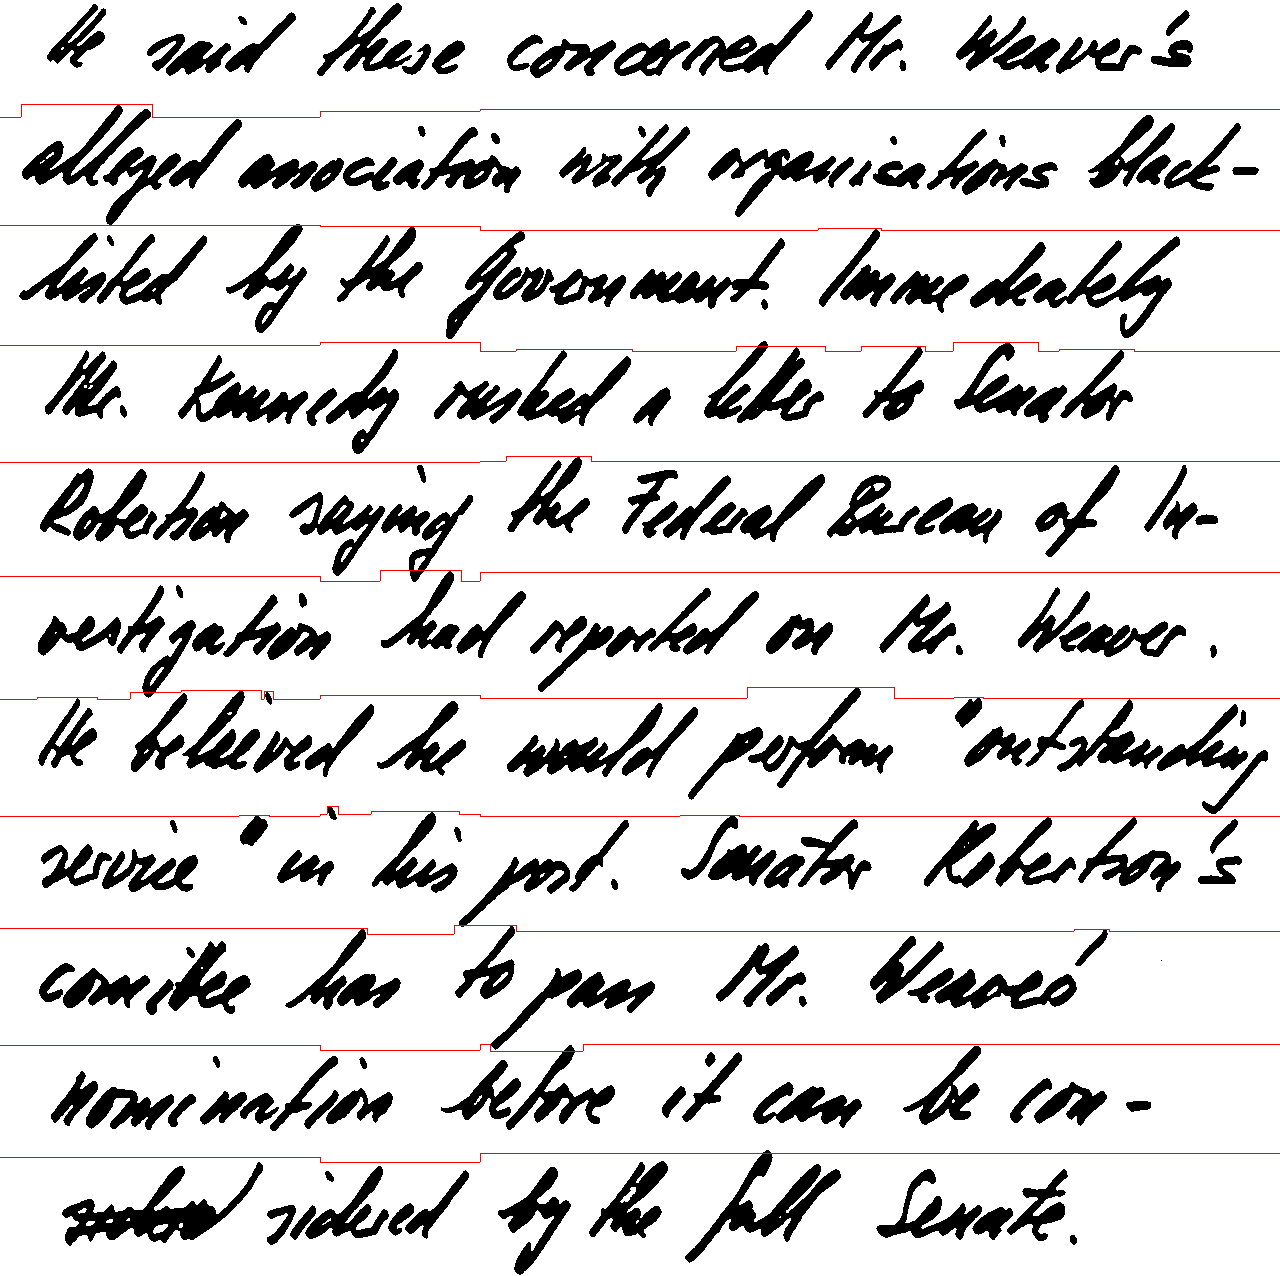 He said these concerned Mr. Weaver's
alleged association with organisations black-
listed by the Government. Immedeately
Mr. Kennedy rushed a letter to Senator
Robertson saying the Federal Bureau of In-
vestigation had reported on Mr. Weaver.
He beleeved he would perform "outstanding
service" in his post. Senator Robertson's
comittee has to pass Mr. Weaver's
nomination before it can be con-
sidered by the full Senate.